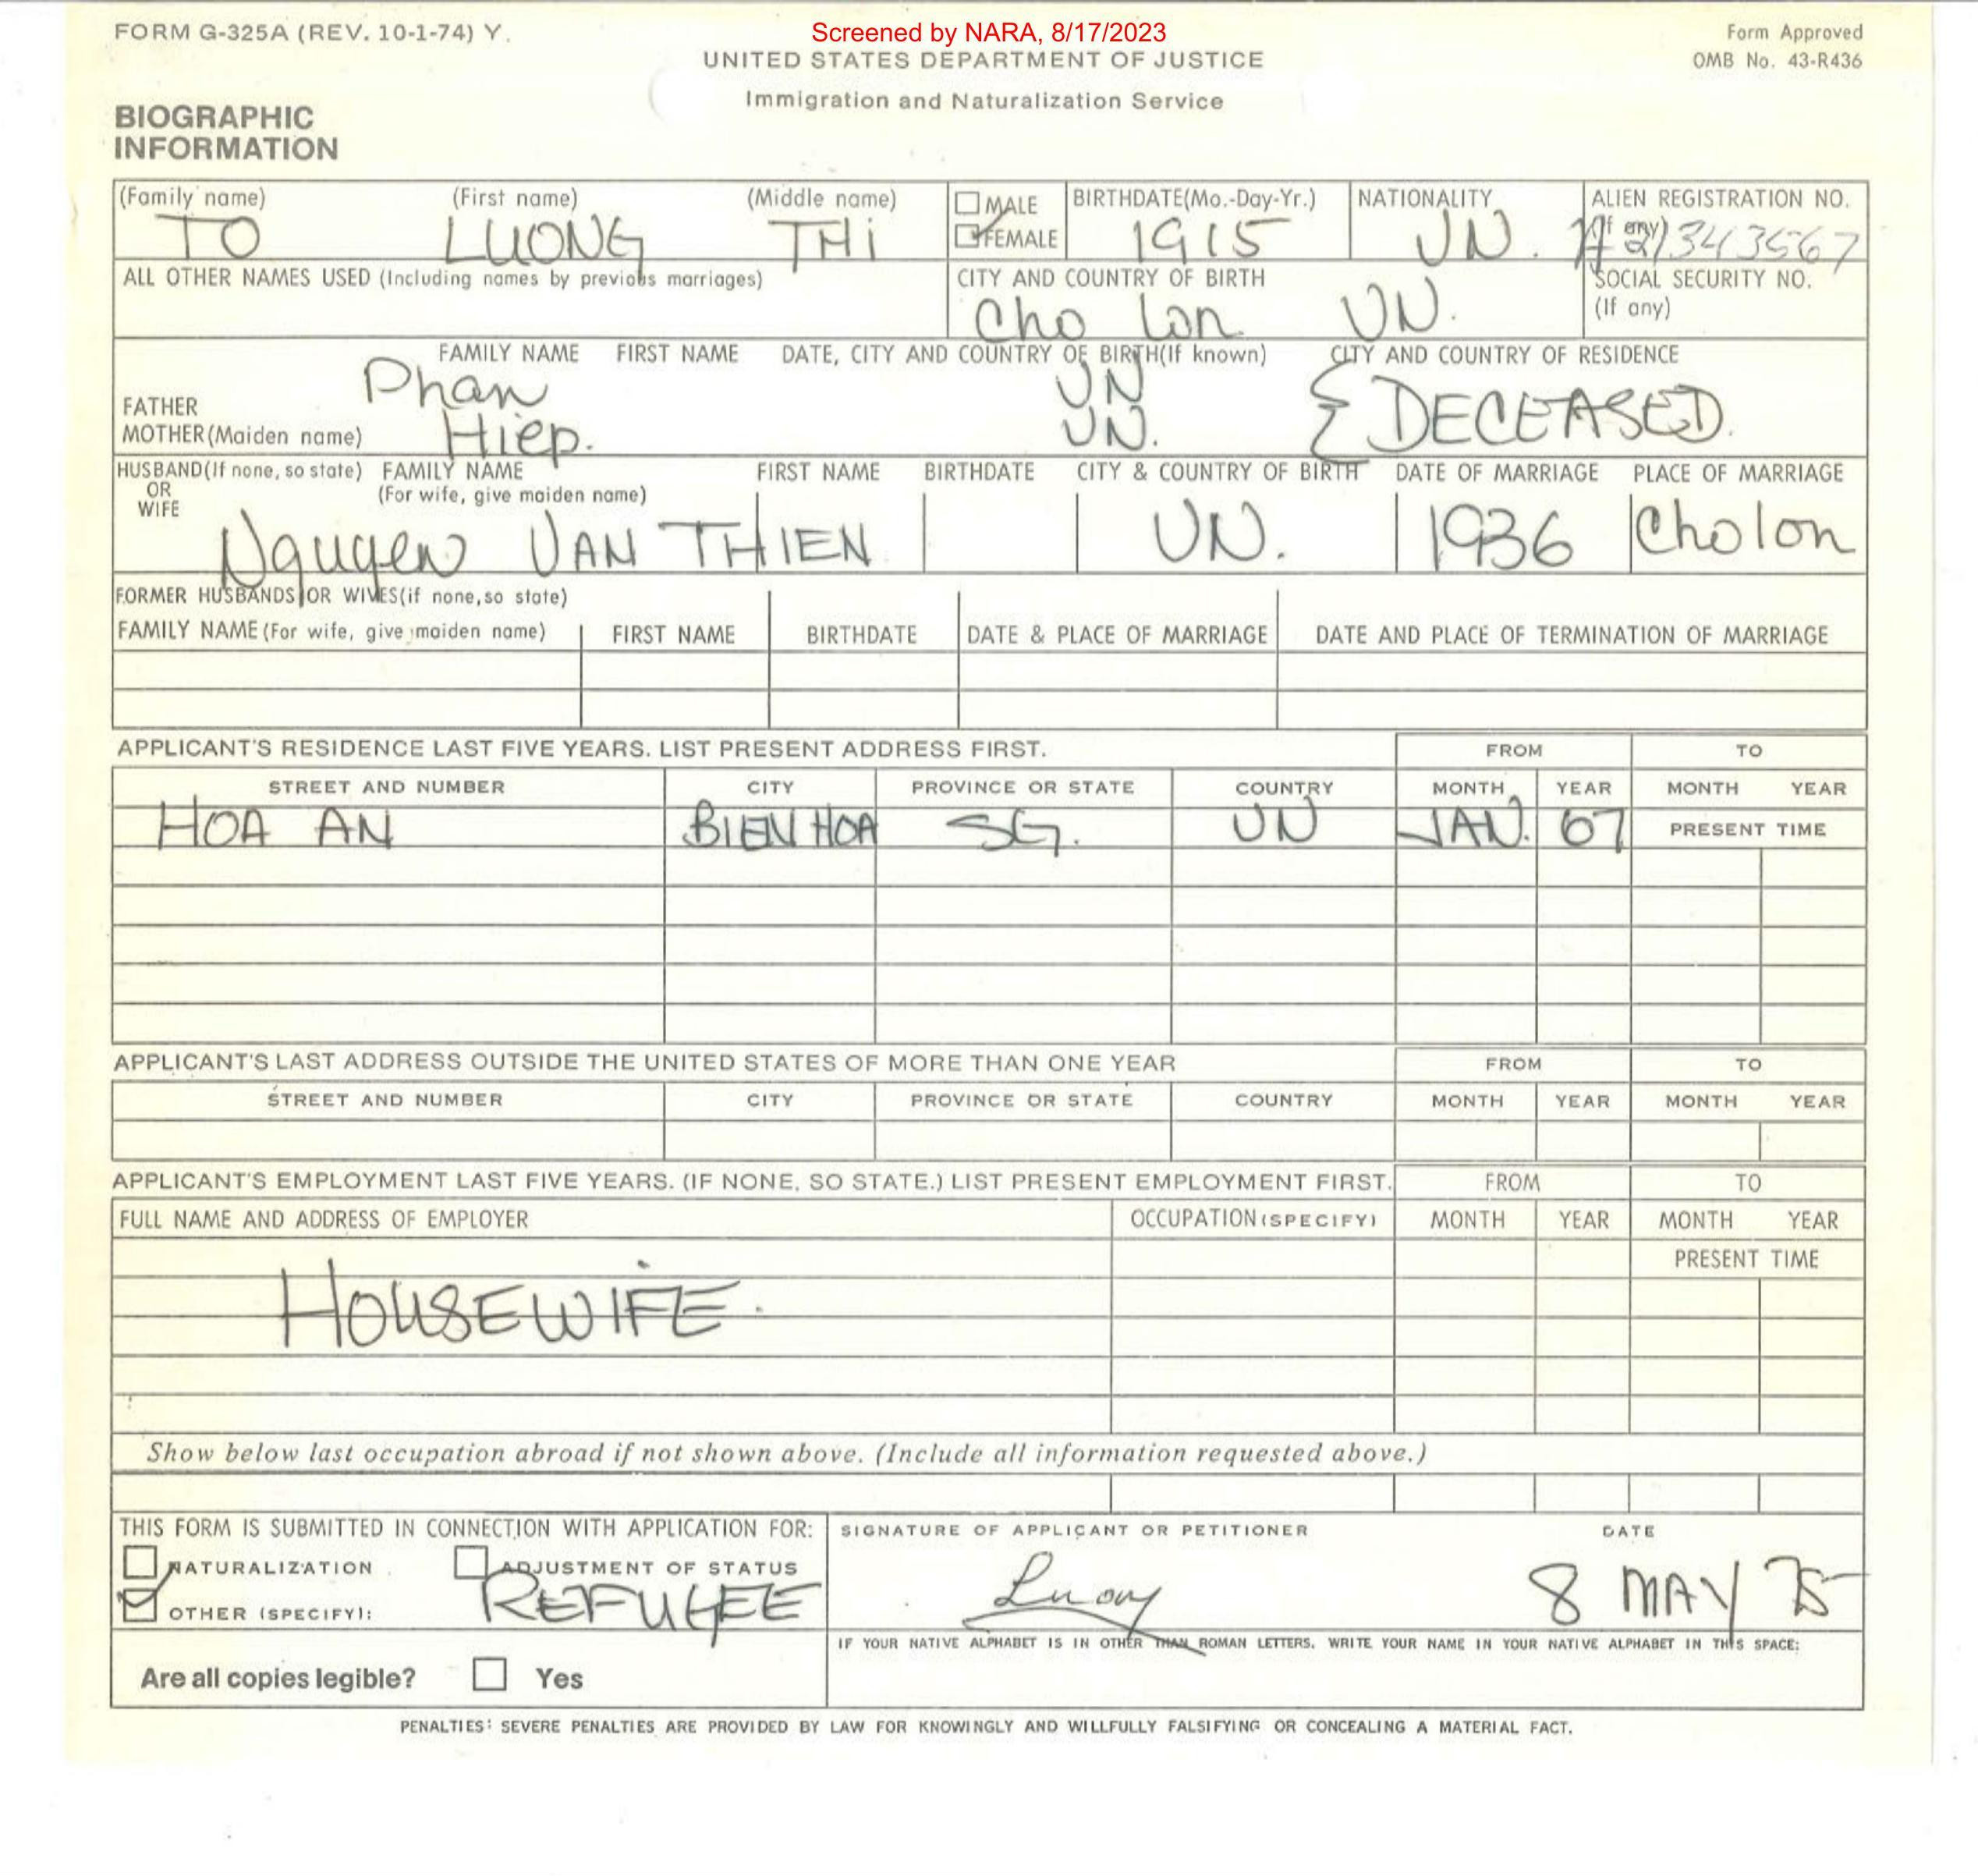 FORM G-325A (REV. 10-1-74) Y.
Screened by NARA, 8/17/2023
Form Approved
OMB No. 43-R436
UNITED STATES DEPARTMENT OF JUSTICE
Immigration and Naturalization Service
BIOGRAPHIC
INFORMATION
(Family name) (First name) (Middle name) MALE FEMALE BIRTHDATE(Mo.-Day-Yr.) NATIONALITY ALIEN REGISTRATION NO. (If any)
TO LUONG THi 1915 VN. A21343567
ALL OTHER NAMES USED (Including names by previous marriages) CITY AND COUNTRY OF BIRTH SOCIAL SECURITY NO. (If any)
Cho Lon VN.
FAMILY NAME FIRST NAME DATE, CITY AND COUNTRY OF BIRTH(If known) CITY AND COUNTRY OF RESIDENCE
FATHER Phan VN DECEASED.
MOTHER(Maiden name) Hiep. VN.
HUSBAND(If none, so state) OR WIFE FAMILY NAME (For wife, give maiden name) FIRST NAME BIRTHDATE CITY & COUNTRY OF BIRTH DATE OF MARRIAGE PLACE OF MARRIAGE
Nguyen VAN THIEN VN. 1936 Cholon
FORMER HUSBANDS OR WIVES(if none,so state)
FAMILY NAME (For wife, give maiden name) FIRST NAME BIRTHDATE DATE & PLACE OF MARRIAGE DATE AND PLACE OF TERMINATION OF MARRIAGE
APPLICANT'S RESIDENCE LAST FIVE YEARS. LIST PRESENT ADDRESS FIRST. FROM TO
STREET AND NUMBER CITY PROVINCE OR STATE COUNTRY MONTH YEAR MONTH YEAR
HOA AN BIEN HOA SG. VN JAN. 67 PRESENT TIME
APPLICANT'S LAST ADDRESS OUTSIDE THE UNITED STATES OF MORE THAN ONE YEAR FROM TO
STREET AND NUMBER CITY PROVINCE OR STATE COUNTRY MONTH YEAR MONTH YEAR
APPLICANT'S EMPLOYMENT LAST FIVE YEARS. (IF NONE, SO STATE.) LIST PRESENT EMPLOYMENT FIRST. FROM TO
FULL NAME AND ADDRESS OF EMPLOYER OCCUPATION (SPECIFY) MONTH YEAR MONTH YEAR
PRESENT TIME
HOUSEWIFE.
Show below last occupation abroad if not shown above. (Include all information requested above.)
THIS FORM IS SUBMITTED IN CONNECTION WITH APPLICATION FOR: SIGNATURE OF APPLICANT OR PETITIONER DATE
NATURALIZATION ADJUSTMENT OF STATUS
OTHER (SPECIFY): REFUGEE Luong 8 MAY 75
IF YOUR NATIVE ALPHABET IS IN OTHER THAN ROMAN LETTERS, WRITE YOUR NAME IN YOUR NATIVE ALPHABET IN THIS SPACE:
Are all copies legible? Yes
PENALTIES: SEVERE PENALTIES ARE PROVIDED BY LAW FOR KNOWINGLY AND WILLFULLY FALSIFYING OR CONCEALING A MATERIAL FACT.